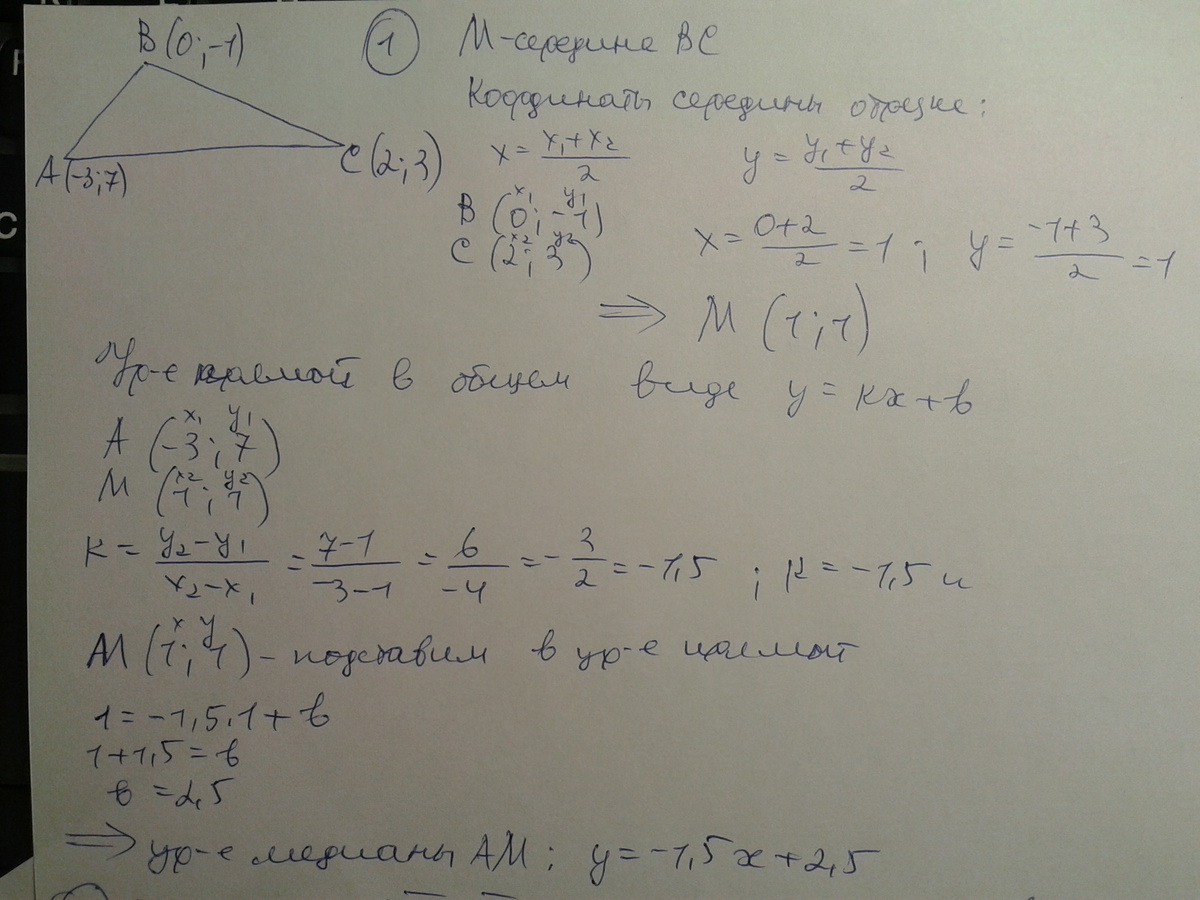 B (0; -1)
① M-середина BC
Координаты середины отрезка:
A (-3; 7)
C (2; 3)
x = (x₁ + x₂)/2   y = (y₁ + y₂)/2
x₁ y₁
B (0; -1)
x₂ y₂
C (2; 3)
x = (0+2)/2 = 1 ; y = (-1+3)/2 = 1
⇒ M (1; 1)
Ур-е прямой в общем виде y = kx + b
x₁ y₁
A (-3; 7)
x₂ y₂
M (1; 1)
k = (y₂ - y₁)/(x₂ - x₁) = (7-1)/(-3-1) = 6/-4 = -3/2 = -1,5 ; k = -1,5 и
x y
M (1; 1) - подставим в ур-е прямой
1 = -1,5·1 + b
1 + 1,5 = b
b = 2,5
⇒ ур-е медианы AM: y = -1,5x + 2,5